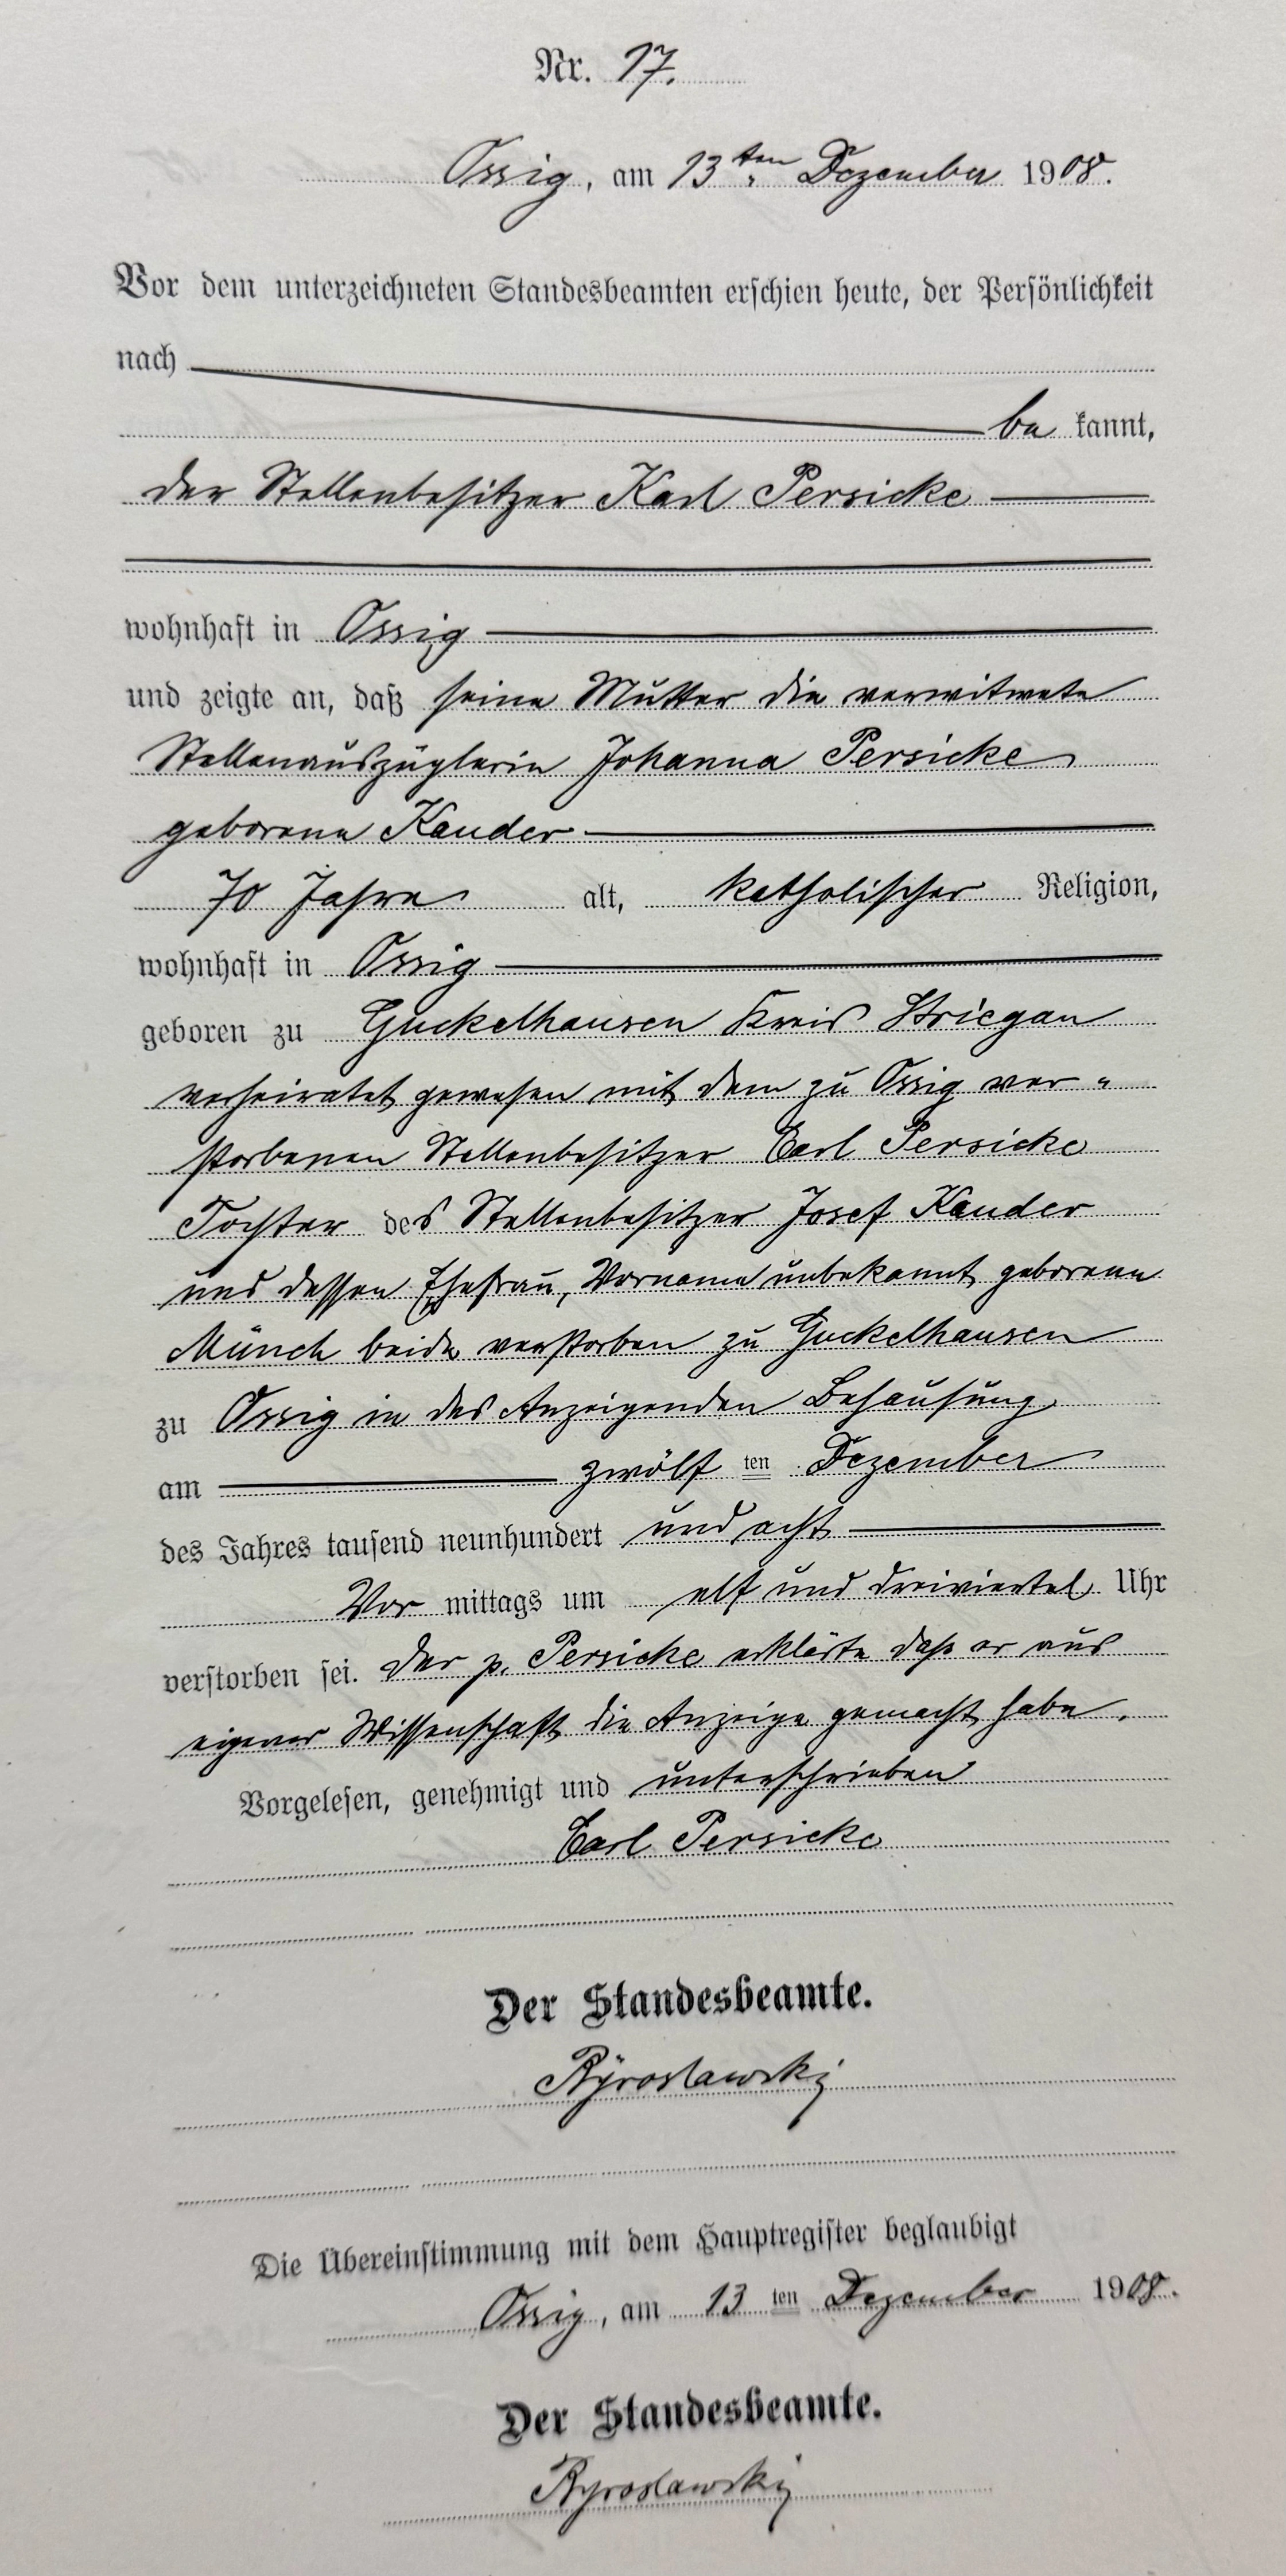 Nr. 17.
Ossig, am 13ten Dezember 1908.
Vor dem unterzeichneten Standesbeamten erschien heute, der Persönlichkeit
nach
be kannt,
der Stellenbesitzer Karl Persicke
wohnhaft in Ossig
und zeigte an, daß seine Mutter die verwitwete
Stellenauszüglerin Johanna Persicke
geborene Kauder
70 Jahre alt, katholischer Religion,
wohnhaft in Ossig
geboren zu Guckelhausen Kreis Striegau
verheiratet gewesen mit dem zu Ossig ver-
storbenen Stellenbesitzer Carl Persicke
Tochter des Stellenbesitzer Josef Kauder
und dessen Ehefrau, Vorname unbekannt geborene
Münch beide verstorben zu Guckelhausen
zu Ossig in des Anzeigenden Behausung
am zwölf ten Dezember
des Jahres tausend neunhundert und acht
Vor mittags um elf und dreiviertel Uhr
verstorben sei. Der p. Persicke erklärte daß er aus
eigener Wissenschaft die Anzeige gemacht habe.
Vorgelesen, genehmigt und unterschrieben
Carl Persicke
Der Standesbeamte.
Die Übereinstimmung mit dem Hauptregister beglaubigt
Ossig, am 13 ten Dezember 1908.
Der Standesbeamte.